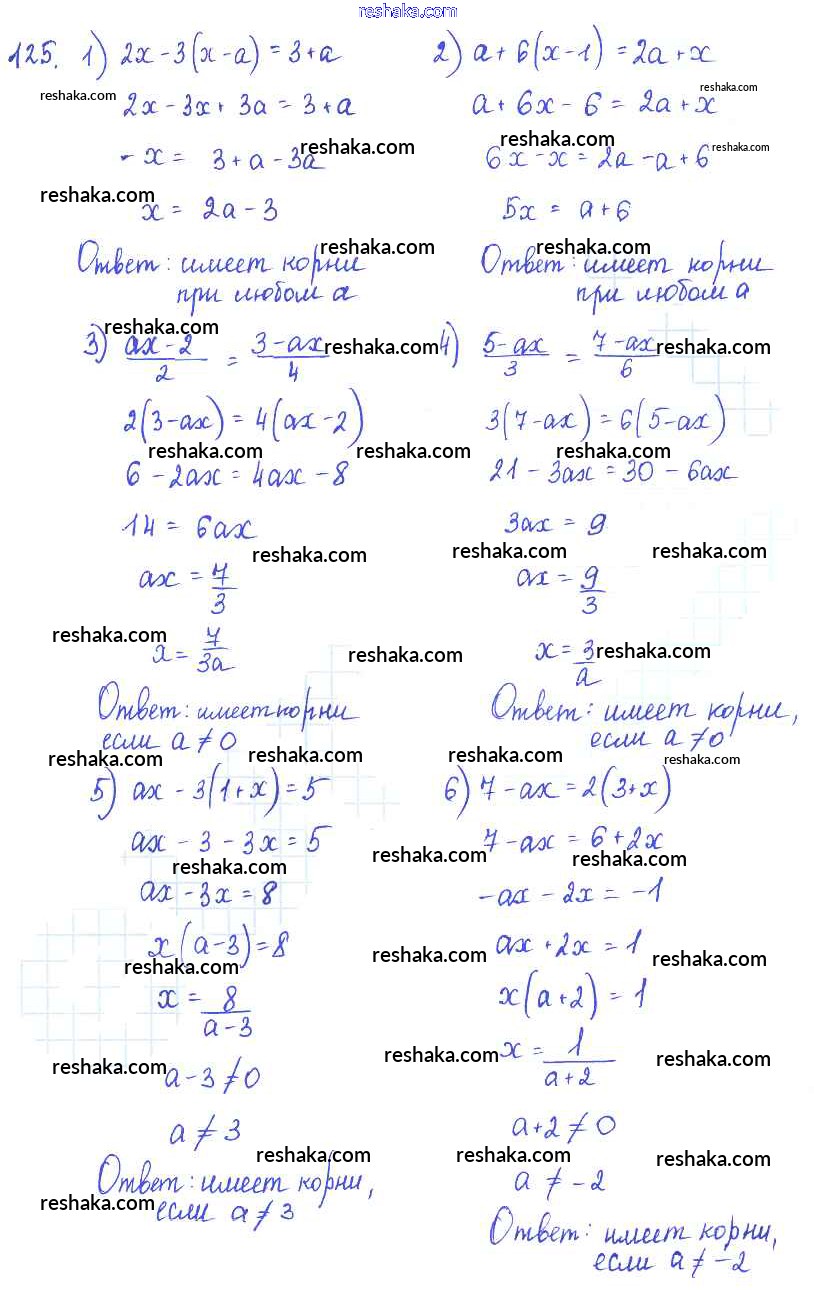 reshaka.com
125. 1) 2x-3(x-a)=3+a
reshaka.com
2x-3x+3a=3+a
-x= 3+a-3a
reshaka.com
reshaka.com
x= 2a-3
reshaka.com
Ответ: имеет корни
при любом a
2) a+6(x-1)=2a+x
reshaka.com
a+6x-6=2a+x
reshaka.com
6x-x=2a-a+6
reshaka.com
5x= a+6
reshaka.com
Ответ: имеет корни
при любом a
reshaka.com
3) ax-2/2 = 3-ax/4
reshaka.com
2(3-ax)=4(ax-2)
reshaka.com
reshaka.com
6-2ax=4ax-8
14= 6ax
reshaka.com
ax=7/3
reshaka.com
x=7/3a
reshaka.com
Ответ: имеет корни
если a≠0
4) 5-ax/3 = 7-ax/6
reshaka.com
3(7-ax)=6(5-ax)
reshaka.com
21-3ax=30-6ax
3ax=9
reshaka.com
reshaka.com
ax=9/3
x=3/a
reshaka.com
Ответ: имеет корни,
если a≠0
reshaka.com
reshaka.com
reshaka.com
reshaka.com
5) ax-3(1+x)=5
ax-3-3x=5
reshaka.com
ax-3x=8
x(a-3)=8
reshaka.com
x=8/a-3
reshaka.com
a-3≠0
a≠3
reshaka.com
Ответ: имеет корни,
reshaka.com
если a≠3
6) 7-ax=2(3+x)
7-ax=6+2x
reshaka.com
reshaka.com
-ax-2x=-1
ax+2x=1
reshaka.com
reshaka.com
x(a+2)=1
x=1/a+2
reshaka.com
reshaka.com
a+2≠0
reshaka.com
reshaka.com
a≠-2
Ответ: имеет корни,
если a≠-2